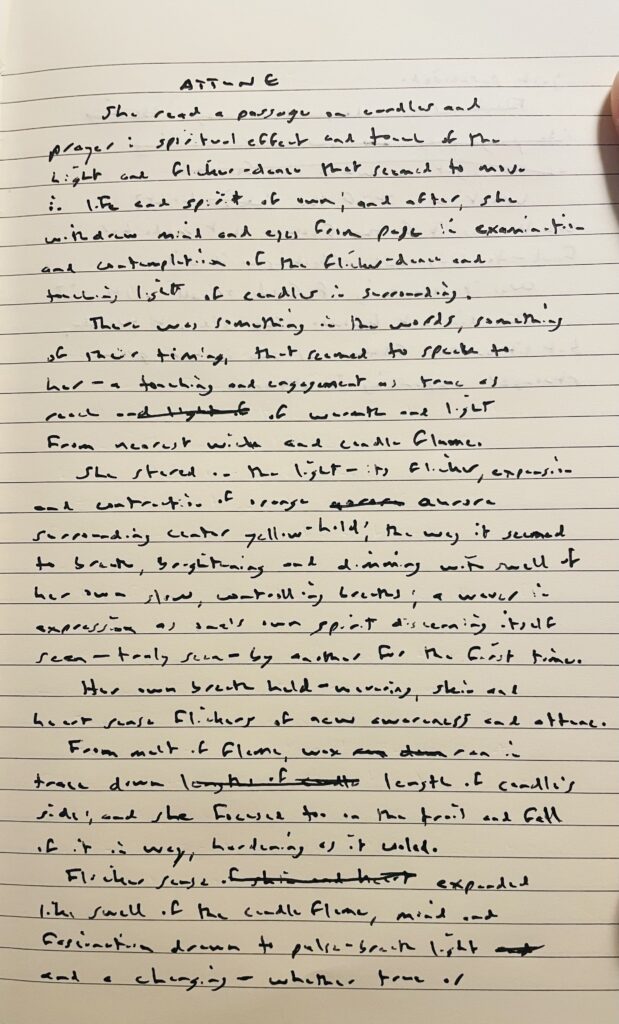 ATTUNE
She read a passage on candles and
prayer: spiritual effect and touch of the
light and flicker-dance that seemed to move
in life and spirit of own; and after, she
withdrew mind and eyes from page in examination
and contemplation of the flicker-dance and
touching light of candles in surrounding.
There was something in the words, something
of their timing, that seemed to speak to
her - a touching and engagement as true as
reach and light of of warmth and light
from nearest wick and candle flame.
She stared in the light - its flicker, expansion
and contraction of orange aurora
surrounding center yellow-hold; the way it seemed
to breath, brightening and dimming with swell of
her own slow, controlling breaths; a waver in
expression as one's own spirit discerning itself
seen - truly seen - by another for the first time.
Her own breath held - wavering, skin and
heart sense flickers of new awareness and attune.
From melt of flame, wax ran in
trace down lengths of candle length of candle's
side; and she focused too on the trail and fall
of it in way, hardening as it cooled.
Flicker sense of skin and heart expanded
like swell of the candle flame, mind and
fascination drawn to pulse-breath light
and a changing - whether true or